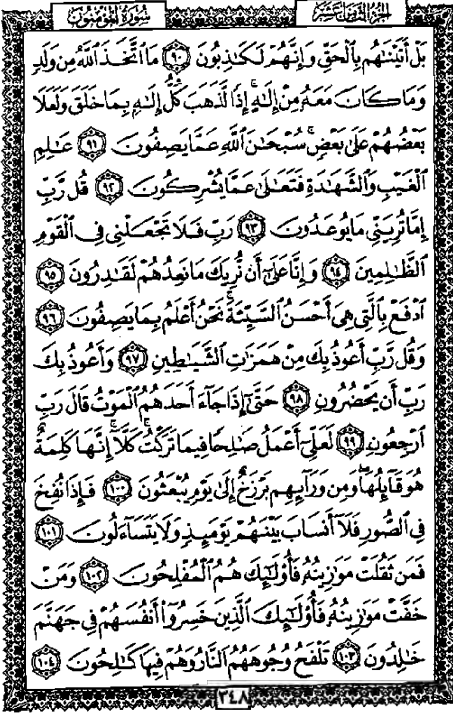 الجزء الثامن عشر
سورة المؤمنون
بَلْ أَتَيْنَٰهُم بِالْحَقِّ وَإِنَّهُمْ لَكَٰذِبُونَ ٩٠ مَا اتَّخَذَ اللَّهُ مِن وَلَدٍ
وَمَا كَانَ مَعَهُ مِنْ إِلَٰهٍ ۚ إِذًا لَّذَهَبَ كُلُّ إِلَٰهٍ بِمَا خَلَقَ وَلَعَلَا
بَعْضُهُمْ عَلَىٰ بَعْضٍ ۚ سُبْحَٰنَ اللَّهِ عَمَّا يَصِفُونَ ٩١ عَٰلِمِ
الْغَيْبِ وَالشَّهَٰدَةِ فَتَعَٰلَىٰ عَمَّا يُشْرِكُونَ ٩٢ قُل رَّبِّ
إِمَّا تُرِيَنِّي مَا يُوعَدُونَ ٩٣ رَبِّ فَلَا تَجْعَلْنِي فِي الْقَوْمِ
الظَّٰلِمِينَ ٩٤ وَإِنَّا عَلَىٰٓ أَن نُّرِيَكَ مَا نَعِدُهُمْ لَقَٰدِرُونَ ٩٥
ادْفَعْ بِالَّتِي هِيَ أَحْسَنُ السَّيِّئَةَ ۚ نَحْنُ أَعْلَمُ بِمَا يَصِفُونَ ٩٦
وَقُل رَّبِّ أَعُوذُ بِكَ مِنْ هَمَزَٰتِ الشَّيَٰطِينِ ٩٧ وَأَعُوذُ بِكَ
رَبِّ أَن يَحْضُرُونِ ٩٨ حَتَّىٰٓ إِذَا جَآءَ أَحَدَهُمُ الْمَوْتُ قَالَ رَبِّ
ارْجِعُونِ ٩٩ لَعَلِّيٓ أَعْمَلُ صَٰلِحًا فِيمَا تَرَكْتُ ۚ كَلَّآ ۚ إِنَّهَا كَلِمَةٌ
هُوَ قَآئِلُهَا ۖ وَمِن وَرَآئِهِم بَرْزَخٌ إِلَىٰ يَوْمِ يُبْعَثُونَ ١٠٠ فَإِذَا نُفِخَ
فِي الصُّورِ فَلَآ أَنسَابَ بَيْنَهُمْ يَوْمَئِذٍ وَلَا يَتَسَآءَلُونَ ١٠١
فَمَن ثَقُلَتْ مَوَٰزِينُهُ فَأُو۟لَٰٓئِكَ هُمُ الْمُفْلِحُونَ ١٠٢ وَمَنْ
خَفَّتْ مَوَٰزِينُهُ فَأُو۟لَٰٓئِكَ الَّذِينَ خَسِرُوٓا۟ أَنفُسَهُمْ فِي جَهَنَّمَ
خَٰلِدُونَ ١٠٣ تَلْفَحُ وُجُوهَهُمُ النَّارُ وَهُمْ فِيهَا كَٰلِحُونَ ١٠٤
٣٤٨